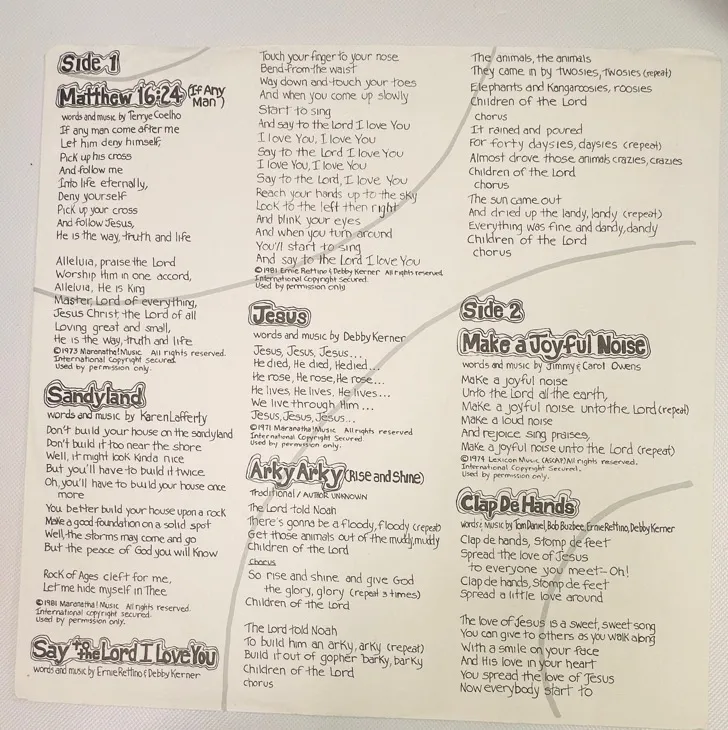 Side 1
Matthew 16:24 (If Any Man)
words and music by Terrye Coelho
If any man come after me
Let him deny himself,
Pick up his cross
And follow me
Into life eternally,
Deny yourself
Pick up your cross
And follow Jesus,
He is the way, truth and life
Alleluia, praise the Lord
Worship Him in one accord,
Alleluia, He is King
Master, Lord of everything,
Jesus Christ the Lord of all
Loving great and small,
He is the way, truth and life
©1973 Maranatha! Music All rights reserved.
International Copyright secured
Used by permission only.
Sandyland
words and music by Karen Lafferty
Don't build your house on the sandyland
Don't build it too near the shore
Well, it might look kinda nice
But you'll have to build it twice
Oh, you'll have to build your house once
more
You better build your house upon a rock
Make a good foundation on a solid spot
Well, the storms may come and go
But the peace of God you will know
Rock of Ages cleft for me,
Let me hide myself in Thee
©1981 Maranatha! Music All rights reserved.
International copyright secured.
Used by permission only.
Say to the Lord I Love You
words and music by Ernie Rettino & Debby Kerner
Touch your finger to your nose
Bend from the waist
Way down and touch your toes
And when you come up slowly
Start to sing
And say to the Lord I love You
I love You, I love You
Say to the Lord I love You
I love You, I love You
Say to the Lord, I love You
Reach your hands up to the sky
Look to the left then right
And blink your eyes
And when you turn around
You'll start to sing
And say to the Lord I love You
©1981 Ernie Rettino & Debby Kerner All rights reserved.
International Copyright secured.
Used by permission only
Jesus
words and music by Debby Kerner
Jesus, Jesus, Jesus...
He died, He died, He died...
He rose, He rose, He rose...
He lives, He lives, He lives...
We live through Him ...
Jesus, Jesus, Jesus...
©1971 Maranatha! Music All rights reserved
International Copyright Secured.
Used by permission only.
Arky Arky (Rise and Shine)
Traditional / Author unknown
The Lord told Noah
There's gonna be a floody, floody (repeat)
Get those animals out of the muddy, muddy
Children of the Lord
Chorus
So rise and shine and give God
the glory, glory (repeat 3 times)
Children of the Lord
The Lord told Noah
To build him an arky, arky (repeat)
Build it out of gopher barky, barky
Children of the Lord
chorus
The animals, the animals
They came in by twosies, twosies (repeat)
Elephants and Kangaroosies, roosies
Children of the Lord
chorus
It rained and poured
For forty daysies, daysies (repeat)
Almost drove those animals crazies, crazies
Children of the Lord
chorus
The sun came out
And dried up the landy, landy (repeat)
Everything was fine and dandy, dandy
Children of the Lord
chorus
Side 2
Make a Joyful Noise
words and music by Jimmy & Carol Owens
Make a joyful noise
Unto the Lord all the earth,
Make a joyful noise unto the Lord (repeat)
Make a loud noise
And rejoice sing praises,
Make a joyful noise unto the Lord (repeat)
©1974 Lexicon Music (ASCAP) All rights reserved.
International Copyright Secured.
Used by permission only.
Clap De Hands
words & music by Tom Daniel, Bob Buzbee, Ernie Rettino, Debby Kerner
Clap de hands, Stomp de feet
Spread the love of Jesus
to everyone you meet-Oh!
Clap de hands, Stomp de feet
Spread a little love around
The love of Jesus is a sweet, sweet song
You can give to others as you walk along
With a smile on your face
And His love in your heart
You spread the love of Jesus
Now everybody start to